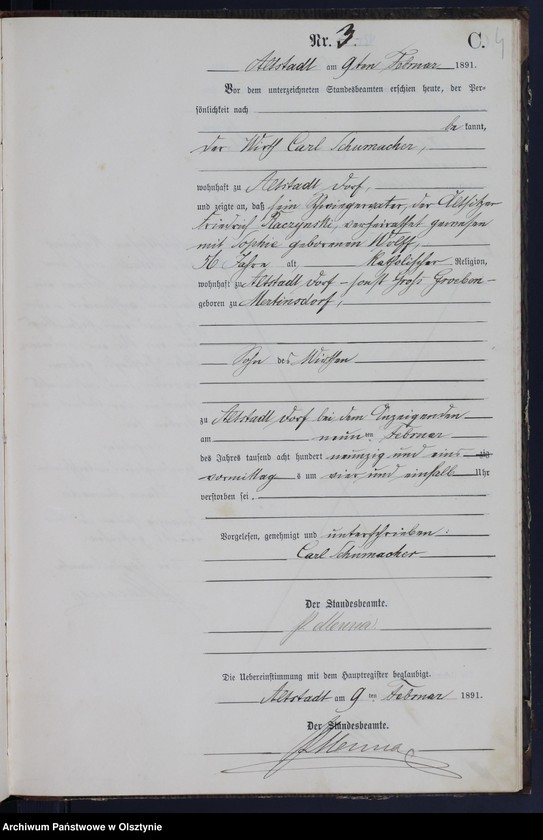 Nr. 3.
C.
Altstadt am 9ten Februar 1891.
Vor dem unterzeichneten Standesbeamten erschien heute, der Per=
sönlichkeit nach
be kannt,
der Wirth Carl Schumacher,
wohnhaft zu Altstadt Dorf,
und zeigte an, daß sein Schwiegervater, der Altsitzer
Friedrich Raczynski, verheirathet gewesen
mit Sophie geborenen Wolff,
Jahre alt katholischer Religion,
wohnhaft zu Altstadt Dorf, – sonst Groß Groeben –
geboren zu Mertinsdorf,
Sohn des
zu Altstadt Dorf bei dem Anzeigenden
am neun ten Februar
des Jahres tausend acht hundert neunzig und eins
vormittags um vier und einhalb Uhr
verstorben sei.
Vorgelesen, genehmigt und unterschrieben:
Carl Schumacher
Der Standesbeamte.
Die Uebereinstimmung mit dem Hauptregister beglaubigt.
Altstadt am 9 ten Februar 1891.
Der Standesbeamte.
Archiwum Państwowe w Olsztynie